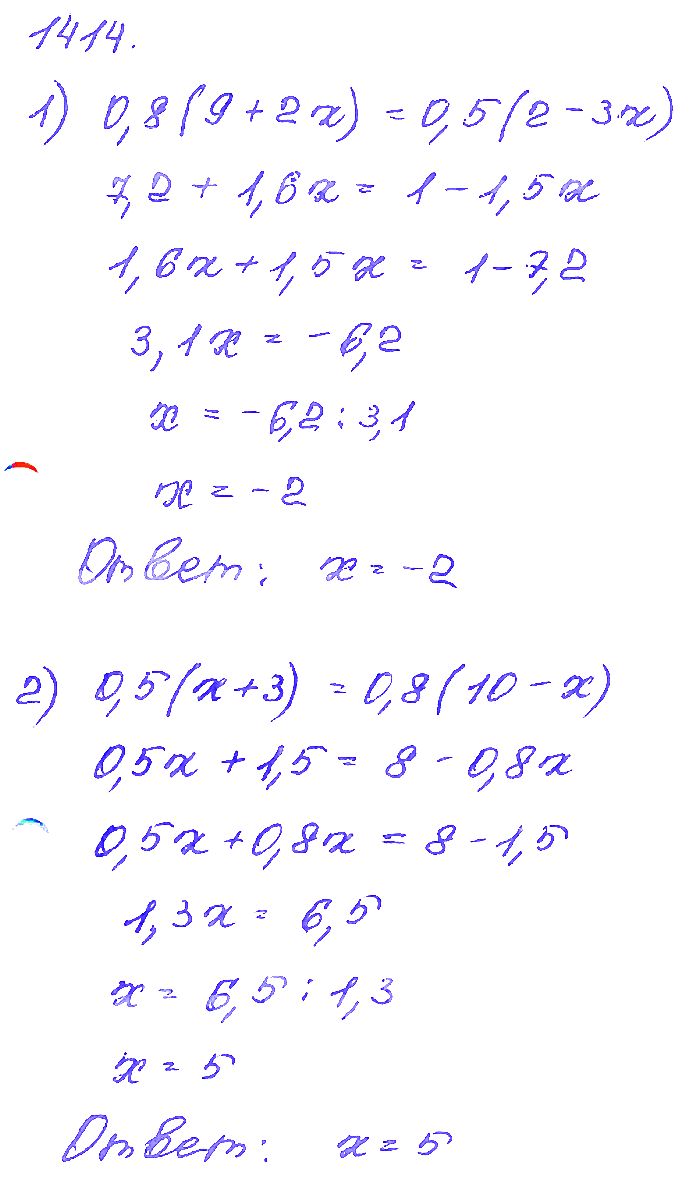 1414.
1) 0,8(9+2x) = 0,5(2-3x)
7,2 + 1,6x = 1-1,5x
1,6x+1,5x = 1-7,2
3,1x = -6,2
x = -6,2:3,1
x = -2
Ответ: x = -2
2) 0,5(x+3) = 0,8(10-x)
0,5x + 1,5 = 8 - 0,8x
0,5x + 0,8x = 8-1,5
1,3x = 6,5
x = 6,5 : 1,3
x = 5
Ответ: x = 5